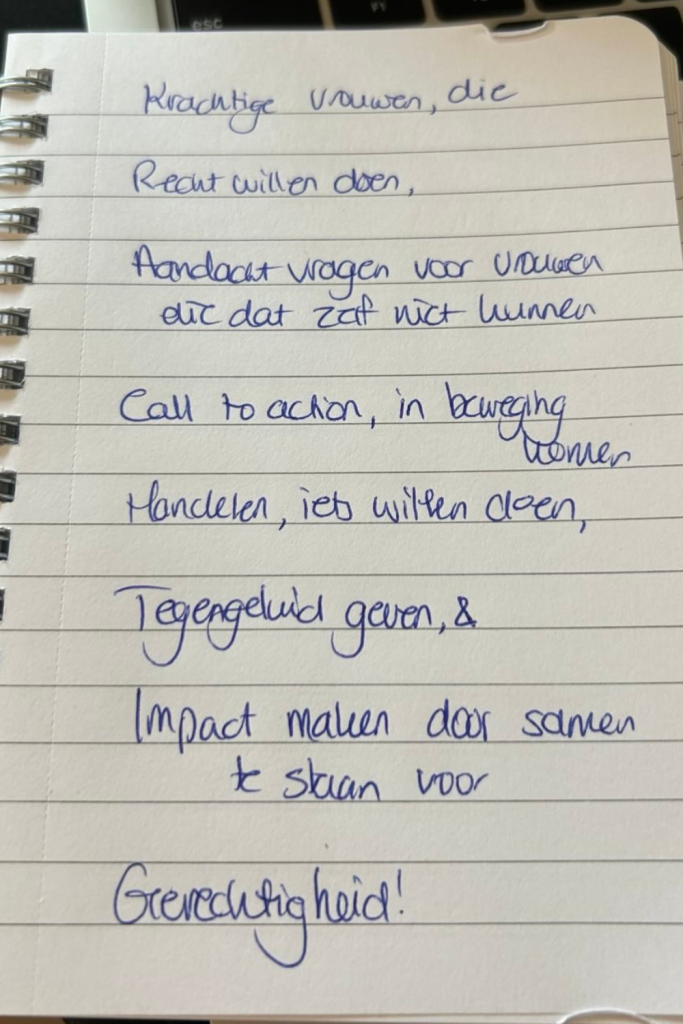 esc
Krachtige vrouwen, die
Recht willen doen,
Aandacht vragen voor vrouwen
die dat zelf niet kunnen
Call to action, in beweging
komen
Handelen, iets willen doen,
Tegengeluid geven, &
Impact maken door samen
te staan voor
Gerechtigheid!